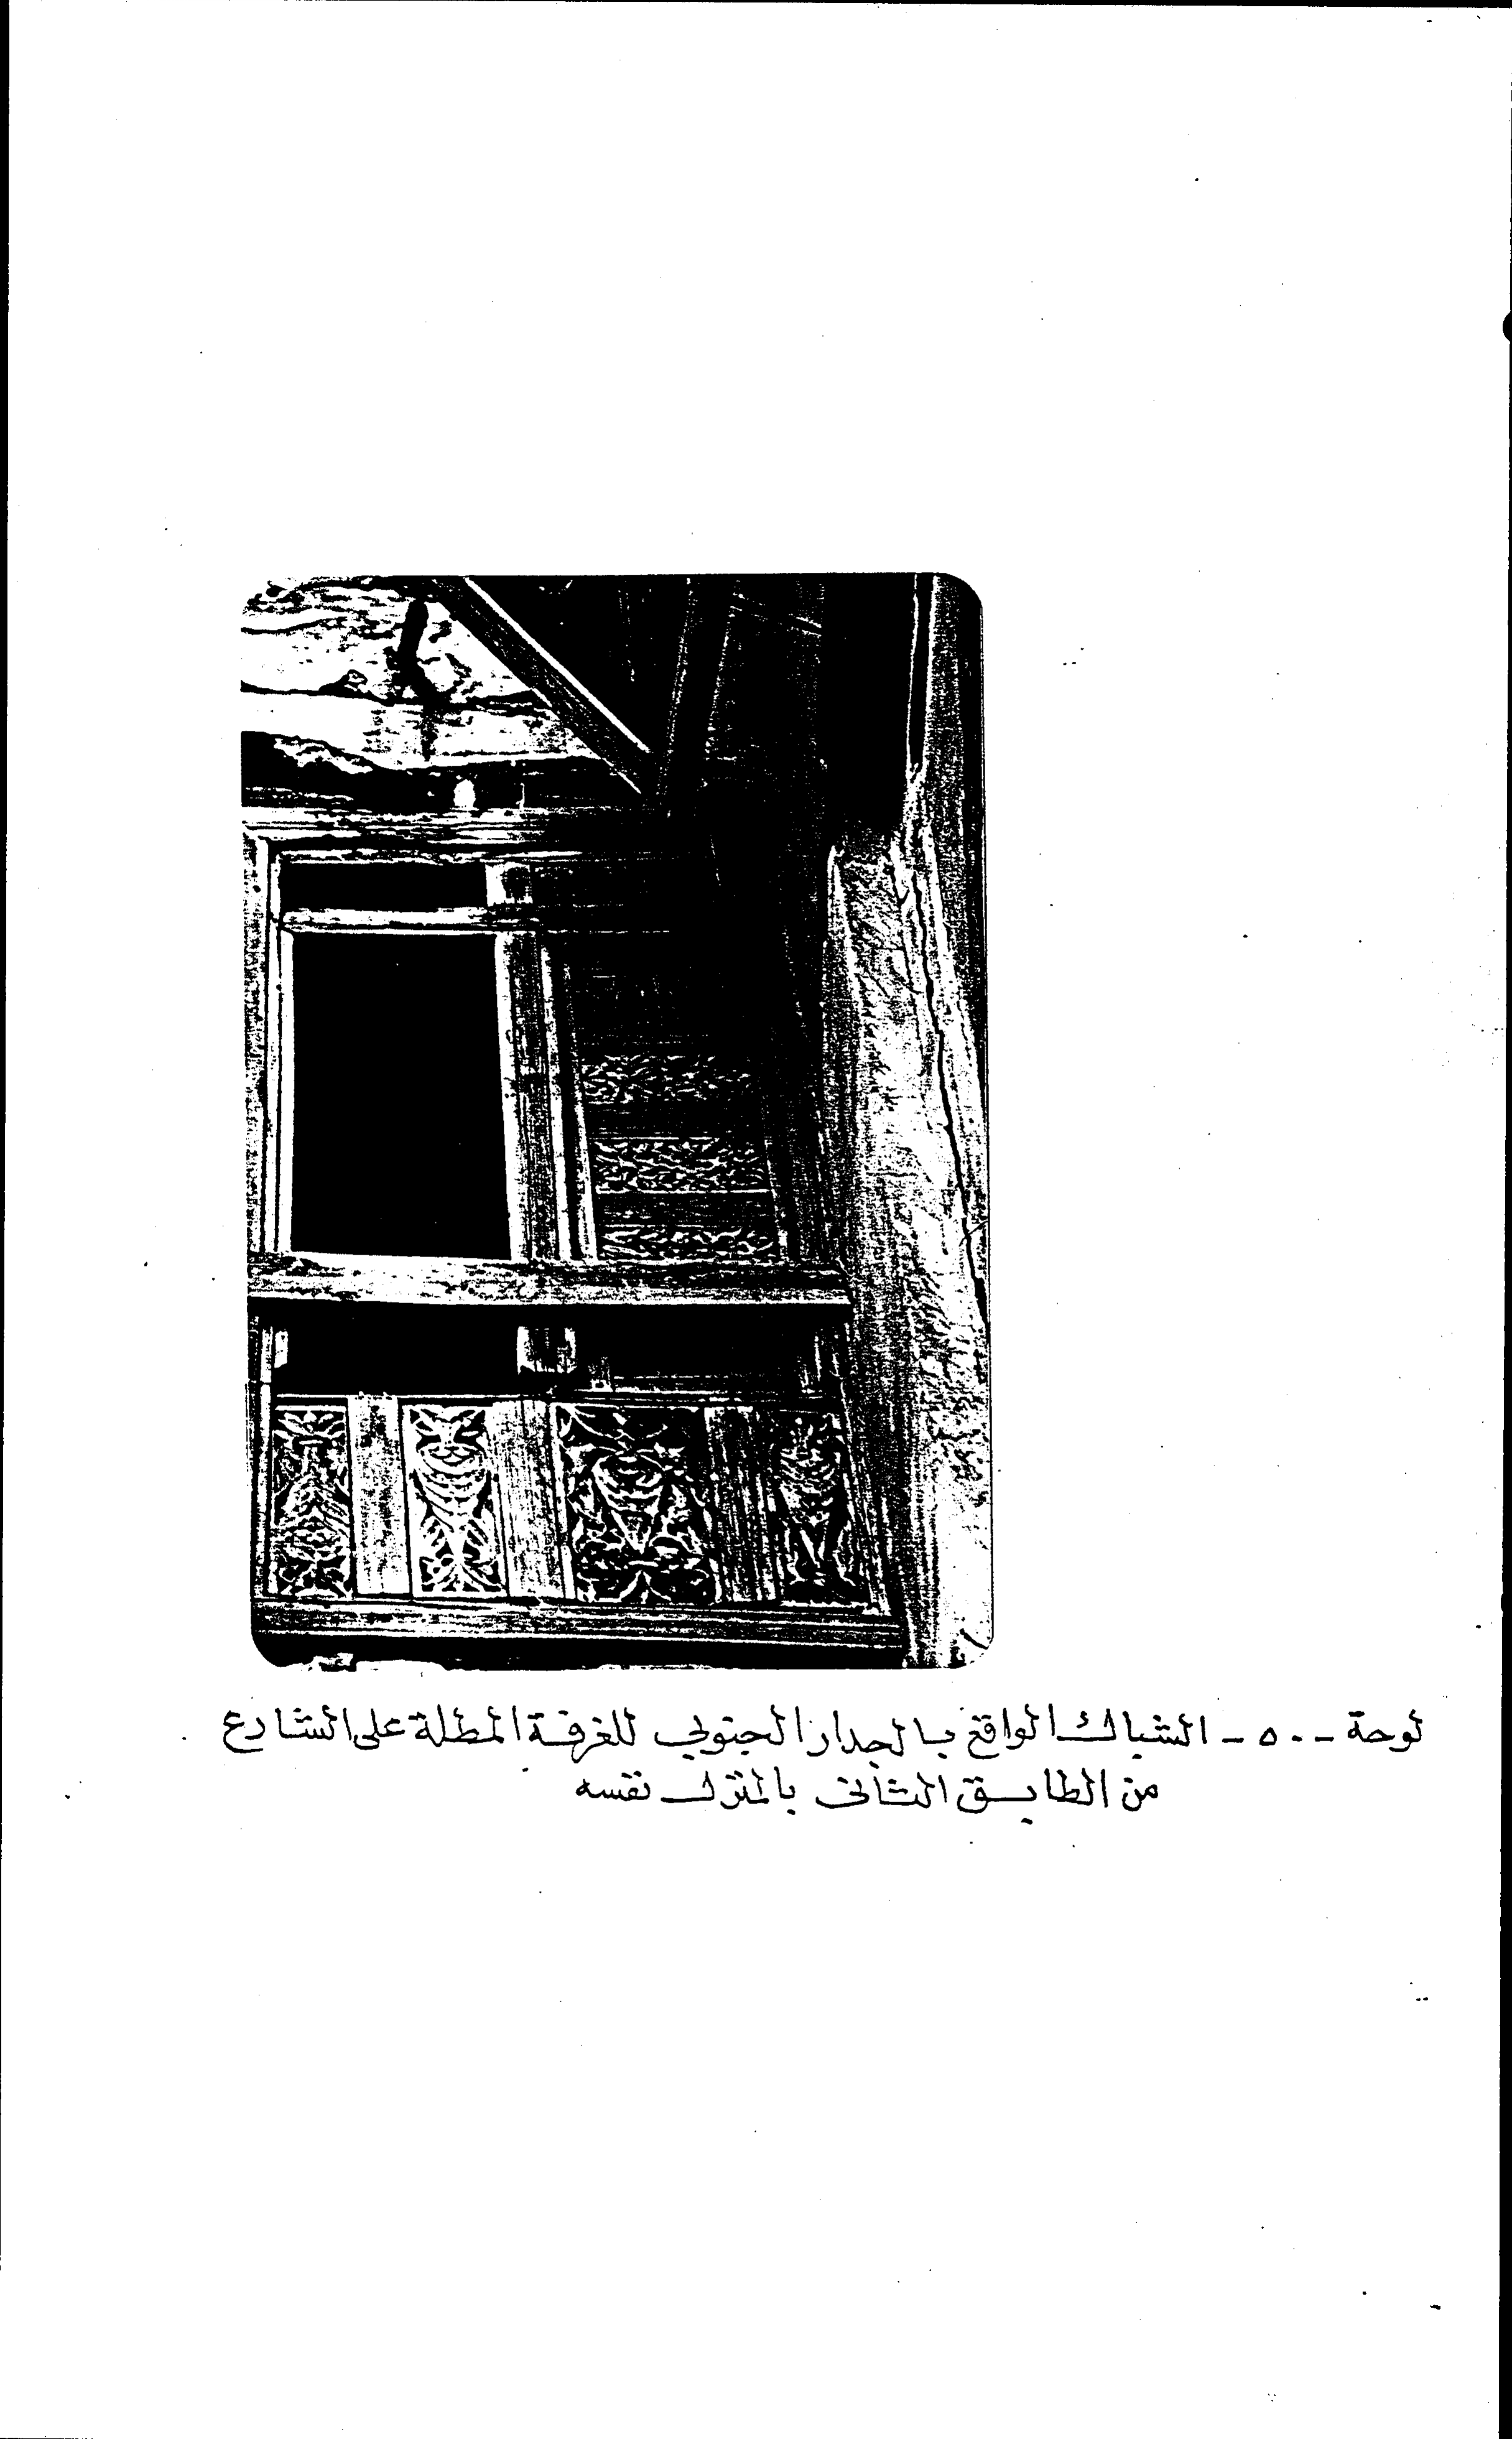 لوحة - ٥٠٠ - الشباك الواقع بالجدار الجنوبي للغرفة المطلة على الشارع
من الطابق الثاني بالمنزل نفسه